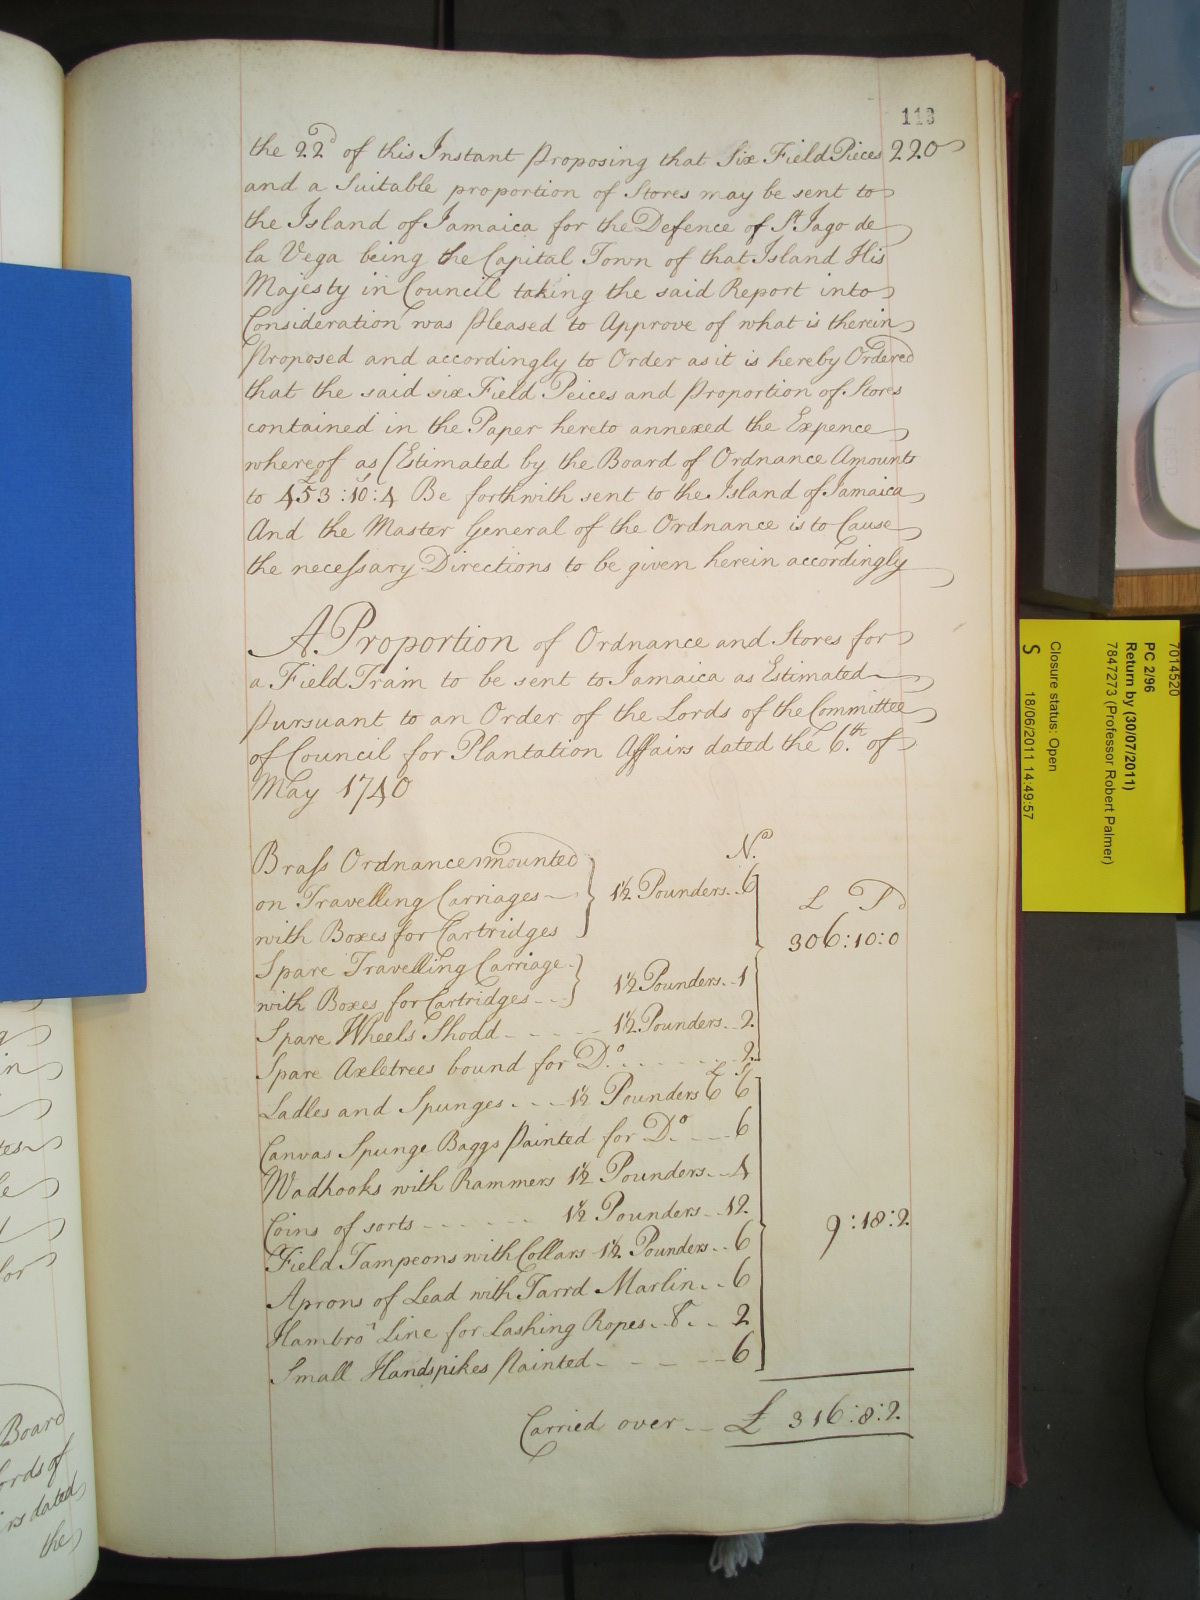 113
the 22d of this Instant Proposing that Six Field Pieces 220
and a Suitable proportion of Stores may be sent to
the Island of Jamaica for the Defence of St Jago de
la Vega being the Capital Town of that Island His
Majesty in Council taking the said Report into
Consideration was Pleased to Approve of what is therein
Proposed and accordingly to Order as it is hereby Ordered
that the said six Field Peices and Proportion of Stores
contained in the Paper hereto annexed the Expence
whereof as (Estimated by the Board of Ordnance Amounts
to £453:10:4 Be forthwith sent to the Island of Jamaica
And the Master General of the Ordnance is to Cause
the necessary Directions to be given herein accordingly
A Proportion of Ordnance and Stores for
a Field Train to be sent to Jamaica as Estimated
Pursuant to an Order of the Lords of the Committee
of Council for Plantation Affairs dated the 6.th of
May 1740
No.
Brass Ordnance mounted
on Travelling Carriages 1½ Pounders 6
with Boxes for Cartridges
£ S D
306:10:0
Spare Travelling Carriage
with Boxes for Cartridges 1½ Pounders 1
Spare Wheels Shodd 1½ Pounders 2
Spare Axletrees bound for Do. 2
Ladles and Spunges 1½ Pounders 6 6
Canvas Spunge Baggs Painted for Do. 6
Wadhooks with Rammers 1½ Pounders 4
Coins of sorts 1½ Pounders 12
9:18:2
Field Tampeons with Collars 1½ Pounders 6
Aprons of Lead with Tarrd Marlin 6
Hambro' Line for Lashing Ropes 2
Small Handspikes Painted 6
Carried over £ 316:8:2
Board
Lords of
dated
the
7014520
PC 2/96
Return by (30/07/2011)
7847273 (Professor Robert Palmer)
Closure status: Open
S 18/06/2011 14:49:57